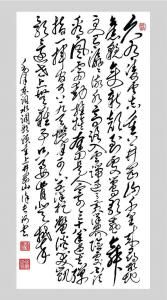 久有凌云志重上井冈山千里来寻故地
旧貌变新颜到处莺歌燕舞
更有潺潺流水高路入云端过了黄洋界险处不须看
风雷动旌旗奋是人寰三十八年过去弹
指一挥间可上九天揽月可下五洋捉鳖谈笑凯
歌还世上无难事只要肯登攀
毛泽东词水调歌头重上井冈山